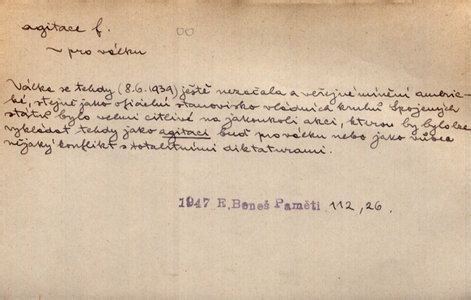 agitace f.
~ pro válku
Válka se tehdy (8.6.1939) ještě nezačala a veřejné mínění americ-
ké, stejně jako oficielní stanovisko vládních kruhů Spojených
států bylo velmi citlivé na jakoukoli akci, kterou by bylo lze
vykládat tehdy jako agitaci buď pro válku nebo jako vůbec
nějaký konflikt s totalitními diktaturami.
1947 E. Beneš Paměti 112, 26.